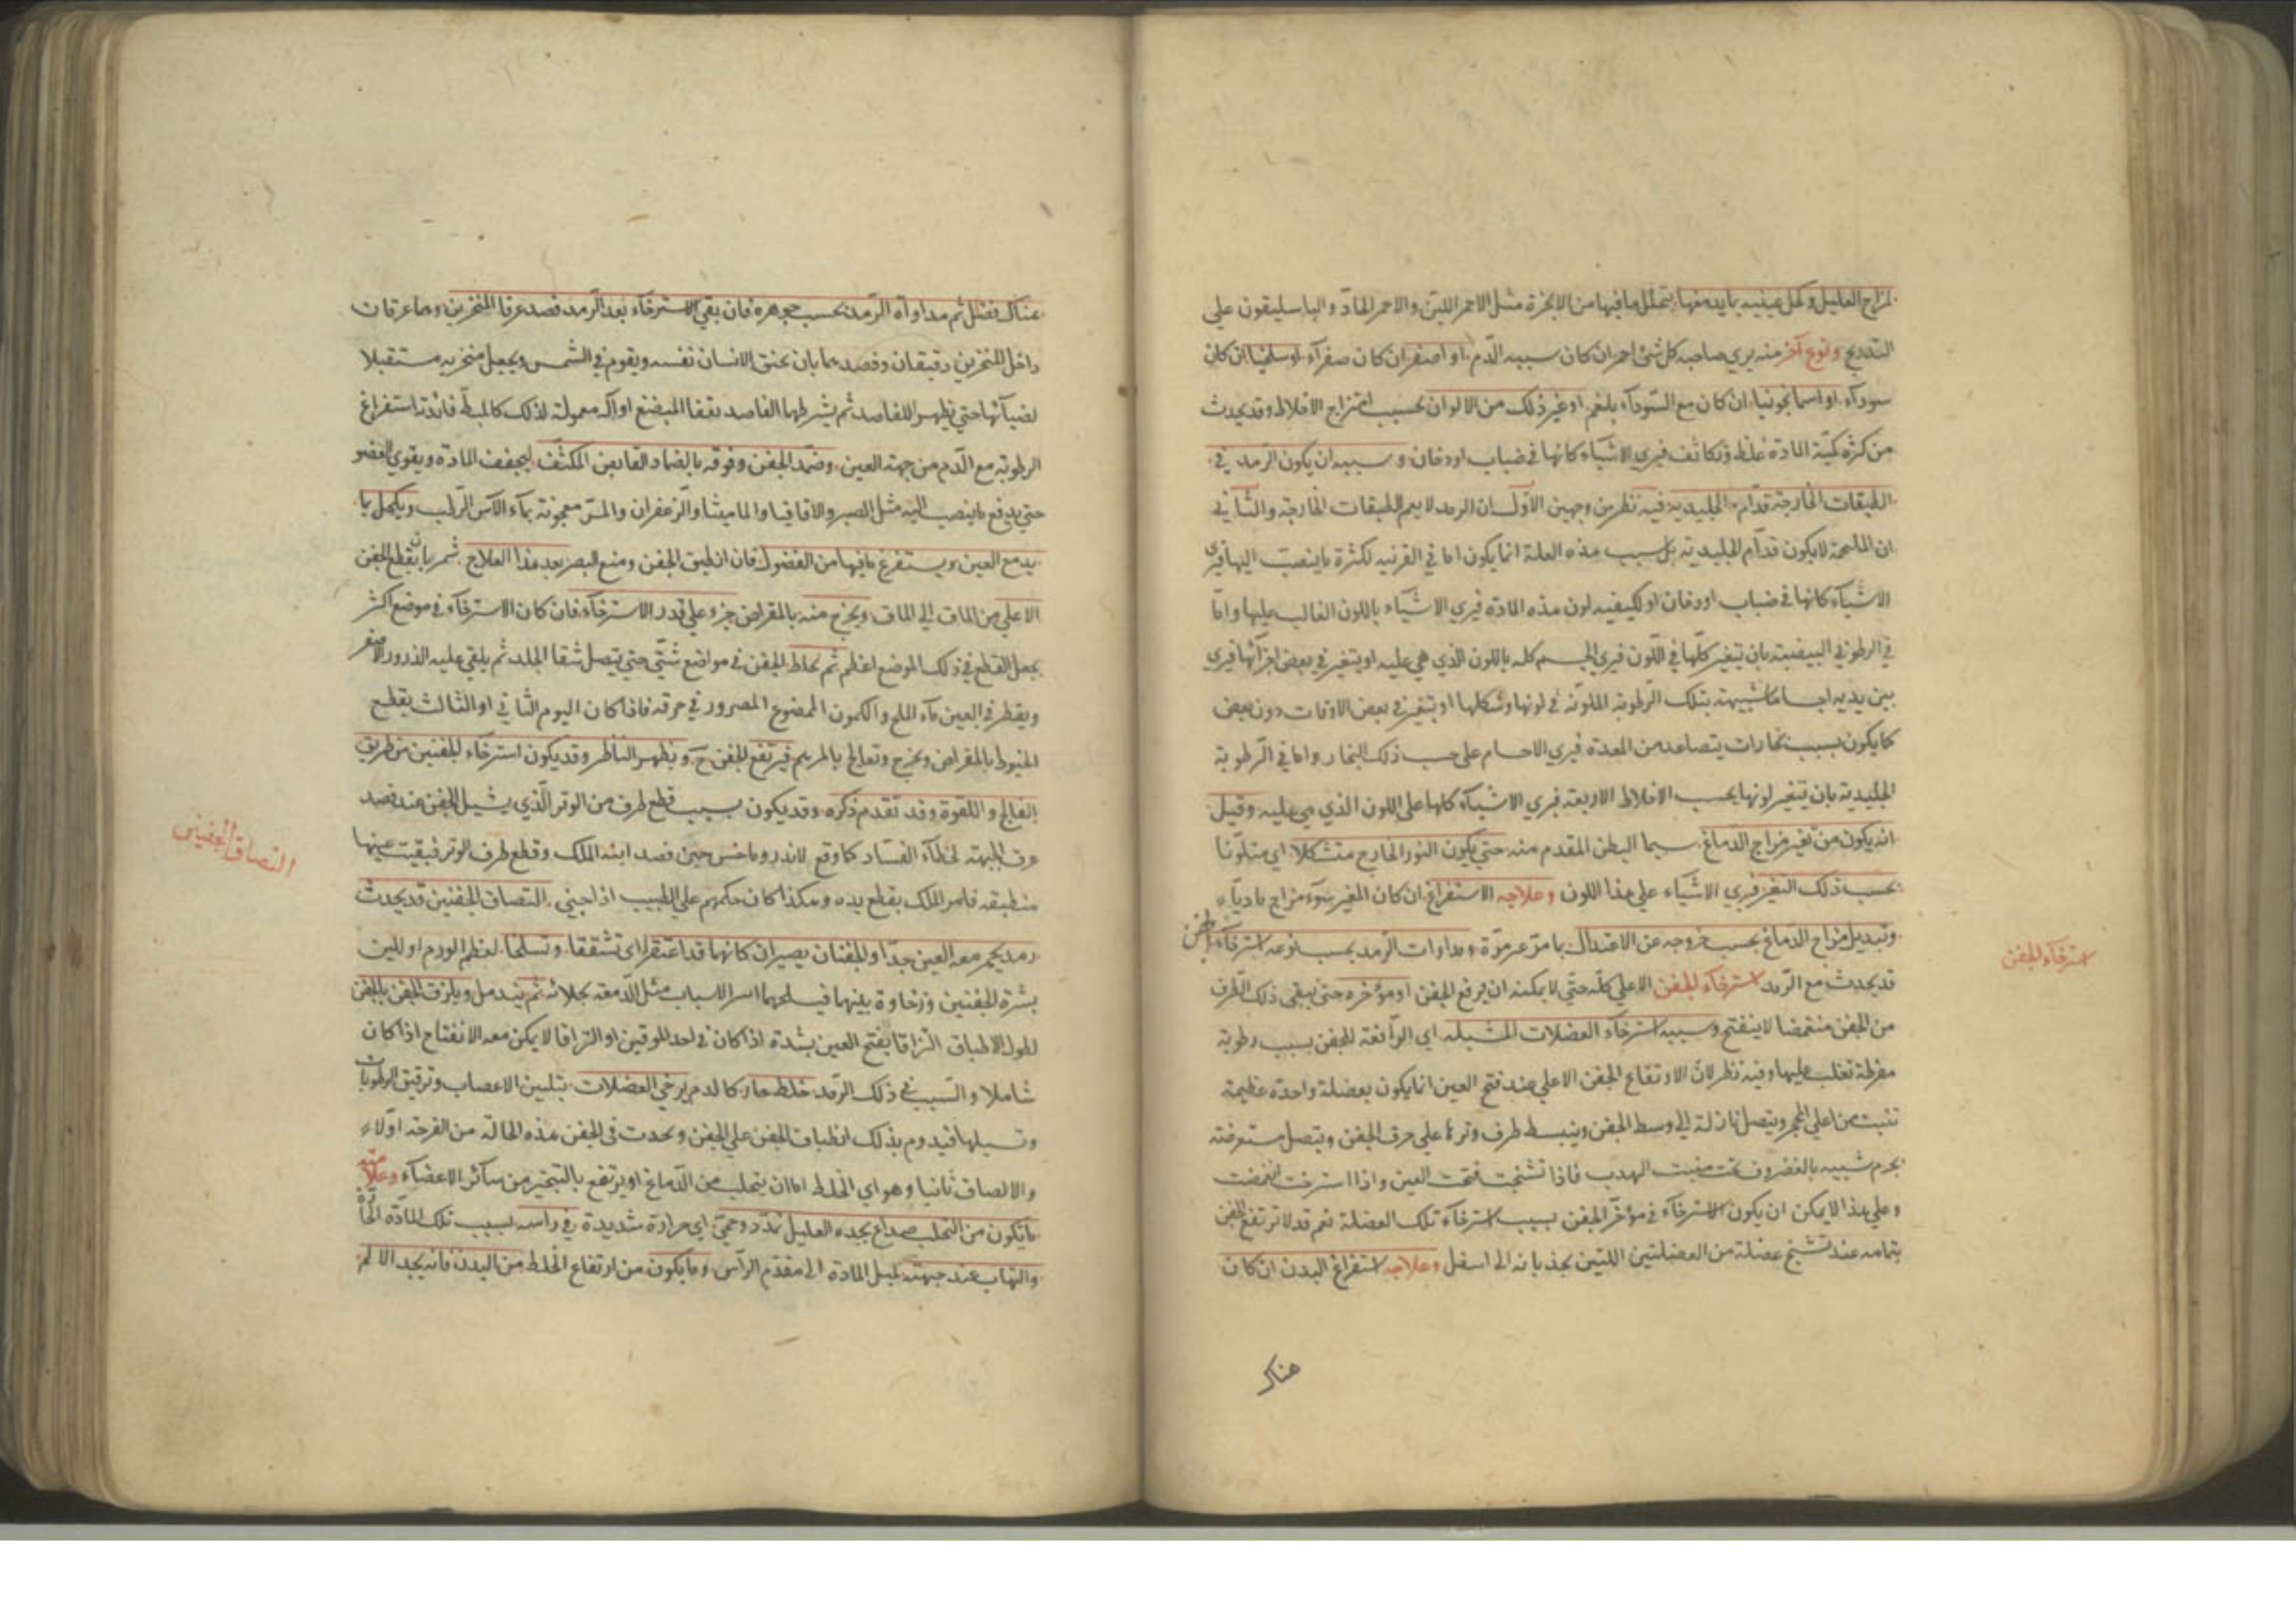 لمزاج العليل وكحل عينيه بما يدمعها ليتحلل ما فيها من الابخرة مثل الاحمر اللين والاحمر الحاد والباسليقون على
التدريج ونوع آخر منه يرى صاحبه كل شئ احمر ان كان سببه الدم او اصفر ان كان صفرآء او سلقيا ان كان
سودآء او اسمانجونيا ان كان مع السودآء بلغم او غير ذلك من الالوان بحسب امتزاج الاخلاط وقد يحدث
من كثرة كمية المادة غلظ وتكاثف فيرى الاشيآء كانها فى ضباب او دخان وسببه ان يكون الرمد فى
الطبقات الخارجة قدآم الجليدية فيه نظر من وجهين الاول ان الرمد لا يعم الطبقات الخارجة والثانى
ان الملتحمة لا يكون قدآم الجليدية بل سبب هذه العلة انما يكون اما فى القرنية لكثرة ما ينصب اليها فيرى
الاشيآء كانها فى ضباب او دخان او لكيفيه لون هذه المادة فيرى الاشيآء باللون الغالب عليها واما
فى الرطوبة البيضية بان يتغير كلها فى اللون فيرى الجسم كله باللون الذي هى عليه او يتغير فى بعض اجزآئها فيرى
بين يديه اجساما شبيهة بتلك الرطوبة الملونة فى لونها وشكلها او يتغير فى بعض الاوقات دون بعض
كما يكون بسبب بخارات يتصاعد من المعدة فيرى الاجسام على حسب ذلك البخار واما فى الرطوبة
الجليدية بان يتغير لونها بحسب الاخلاط الاربعة فيرى الاشيآء كلها على اللون الذي هى عليه وقيل
انه يكون من تغير مزاج الدماغ سيما البطن المقدم منه حتى يكون النور الخارج متشكلا اى متلونا
بحسب ذلك التغير فيرى الاشيآء على هذا اللون وعلاجه الاستفراغ ان كان المغير سوء مزاج ماديا
وتبديل مزاج الدماغ بحسب خروجه عن الاعتدال بما مر غير مرة ومداوات الرمد بحسب نوعه استرخآء الجفن
قد يحدث مع الرمد استرخآء الجفن الاعلى كله حتى لا يمكنه ان يرفع الجفن او مؤخره حتى يبقى ذلك الطرف
من الجفن منغمضا لا ينفتح وسببه استرخآء العضلات المشيلة اى الرآفعة للجفن بسبب رطوبة
مفرطة تغلب عليها وفيه نظر لان الارتفاع الجفن الاعلى عند فتح العين انما يكون بعضلة واحدة عظيمة
تنبت من اعلى المحجر ويتصل نازلة الى وسط الجفن وينبسط طرف وترها على حرف الجفن ويتصل مستعرضة
بجرم شبيه بالغضروف تحت منبت الهدب فاذا تشنجت فتحت العين واذا استرخت انغمضت
وعلى هذا لا يمكن ان يكون الاسترخآء فى مؤخر الجفن بسبب استرخآء تلك العضلة نعم قد لا ترتفع الجفن
بتمامه عند تشنج عضلة من العضلتين اللتين يجذبانه الى اسفل وعلاجه استفراغ البدن ان كان
هناك
استرخآء الجفن
هناك فضل ثم مداواة الرمد بحسب جوهره فان بقى الاسترخآء بعد الرمد فصد عرقا المنخرين وهما عرقان
داخل المنخرين دقيقان وفصدهما بان يخنق الانسان نفسه ويقوم فى الشمس ويجعل منخريه مستقبلا
لضيآئها حتى يظهر للفاصد ثم يشرطها الفاصد بقفا المبضع او اله معمولة لذلك كالمبط فائدته استفراغ
الرطوبة مع الدم من جهة العين وضمد الجفن وفوقه بالضماد القابض المكثف ليجفف المادة ويقوى العضو
حتى يدفع ما ينصب اليه مثل الصبر والاقاقيا والماميثا والزعفران والمر معجونة بمآء الآس الرطب ويكحل بما
يدمع العين ويستفرغ ما فيها من الفضول فان انطبق الجفن ومنع البصر بعد هذا العلاج شمر بان يقطع الجفن
الاعلى من الماق الى الماق ويخرج منه بالمقراض جزء على قدر الاسترخآء فان كان الاسترخآء فى موضع اكثر
يجعل القطع فى ذلك الموضع اعظم ثم يخاط الجفن فى مواضع شتى حتى يتصل شقا الجلد ثم يلقى عليه الذرور الاصفر
ويقطر فى العين مآء الملح والكمون الممضوغ المصرور فى خرقة فاذا كان اليوم الثانى او الثالث يقطع
الخيوط بالمقراض ويخرج وتعالج بالمرهم فيرتفع الجفن ح ويظهر الناظر وقد يكون استرخآء الجفنين من طريق
الفالج واللقوة وقد تقدم ذكره وقد يكون بسبب قطع طرف من الوتر الذي يشيل الجفن عند فصد
عرق الجبهة لخطآء الفصاد كما وقع لاندروماخس حين فصد ابنة الملك وقطع طرف الوتر فبقيت عينها
منطبقة فامر الملك بقطع يده وهكذا كان حكمهم على الطبيب اذا جنى التصاق الجفنين قد يحدث
رمد يحمر معه العين جدا والجفنان يصيران كانهما قد اعتقرا اى تشققا وتسلخا لعظم الورم او للين
بشرة الجفنين ورخاوة بينهما فيسلخهما اسر الاسباب مثل الدمعة بجلائه ثم يندمل ويلزق الجفن بالجفن
لطول الاطباق التزاقا يفتح العين بشدة اذا كان فى احد الموقين او التزاقا لا يمكن معه الانفتاح اذا كان
شاملا والسبب فى ذلك الرمد خلط حار كالدم يرخى العضلات بتليين الاعصاب وترقيق الرطوبات
وتسيلها فيدوم بذلك انطباق الجفن على الجفن ويحدث فى الجفن هذه الحالة من القرحة اولا
والالصاق ثانيا وهو اى الخلط اما ان يتحلب من الدماغ او يرتفع بالتبخير من سآئر الاعضآء وعلامته
ما يكون من التحلب صداع يجده العليل تمدد وحمى اى حرارة شديدة فى راسه بسبب تلك المادة الحارة
والتهاب عند جبهته لميل المادة الى مقدم الرأس وما يكون من ارتفاع الخلط من البدن فانه يجد الالم
التصاق الجفنين